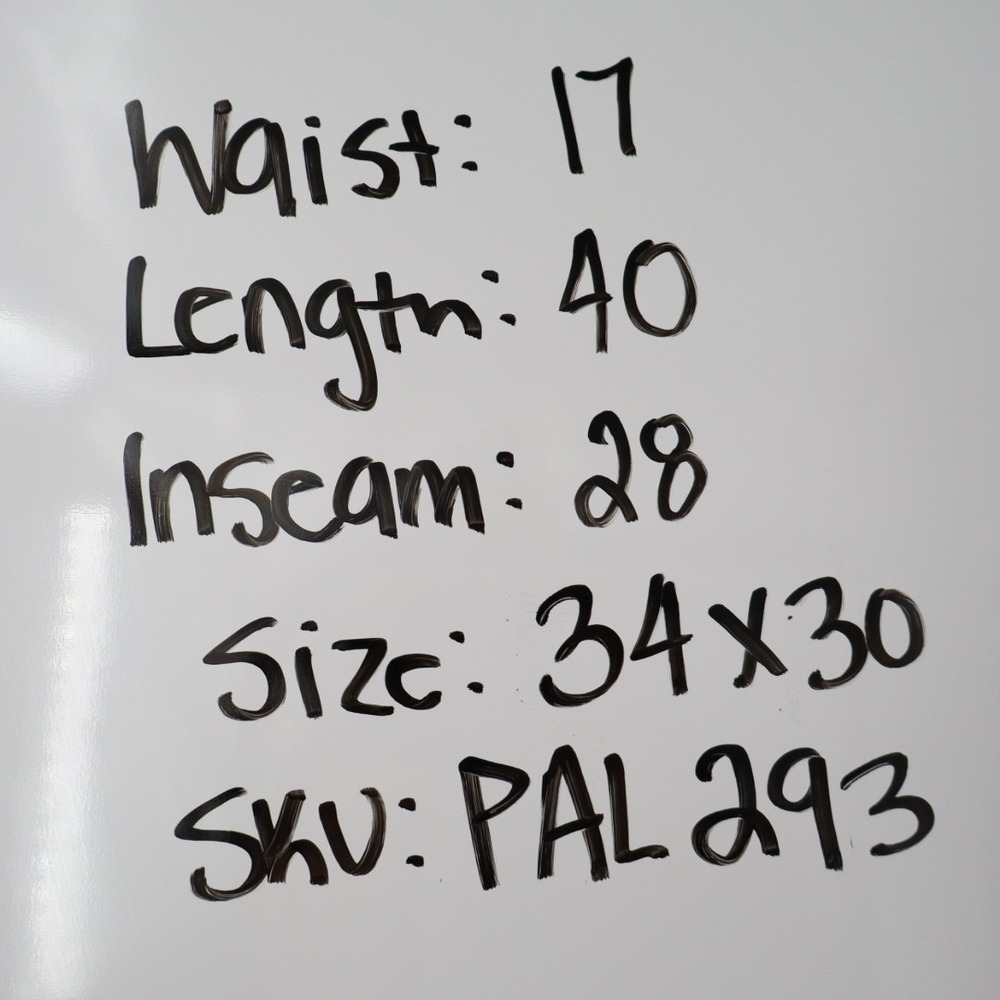 Waist: 17
Length: 40
Inseam: 28
Size: 34x30
SKU: PAL293